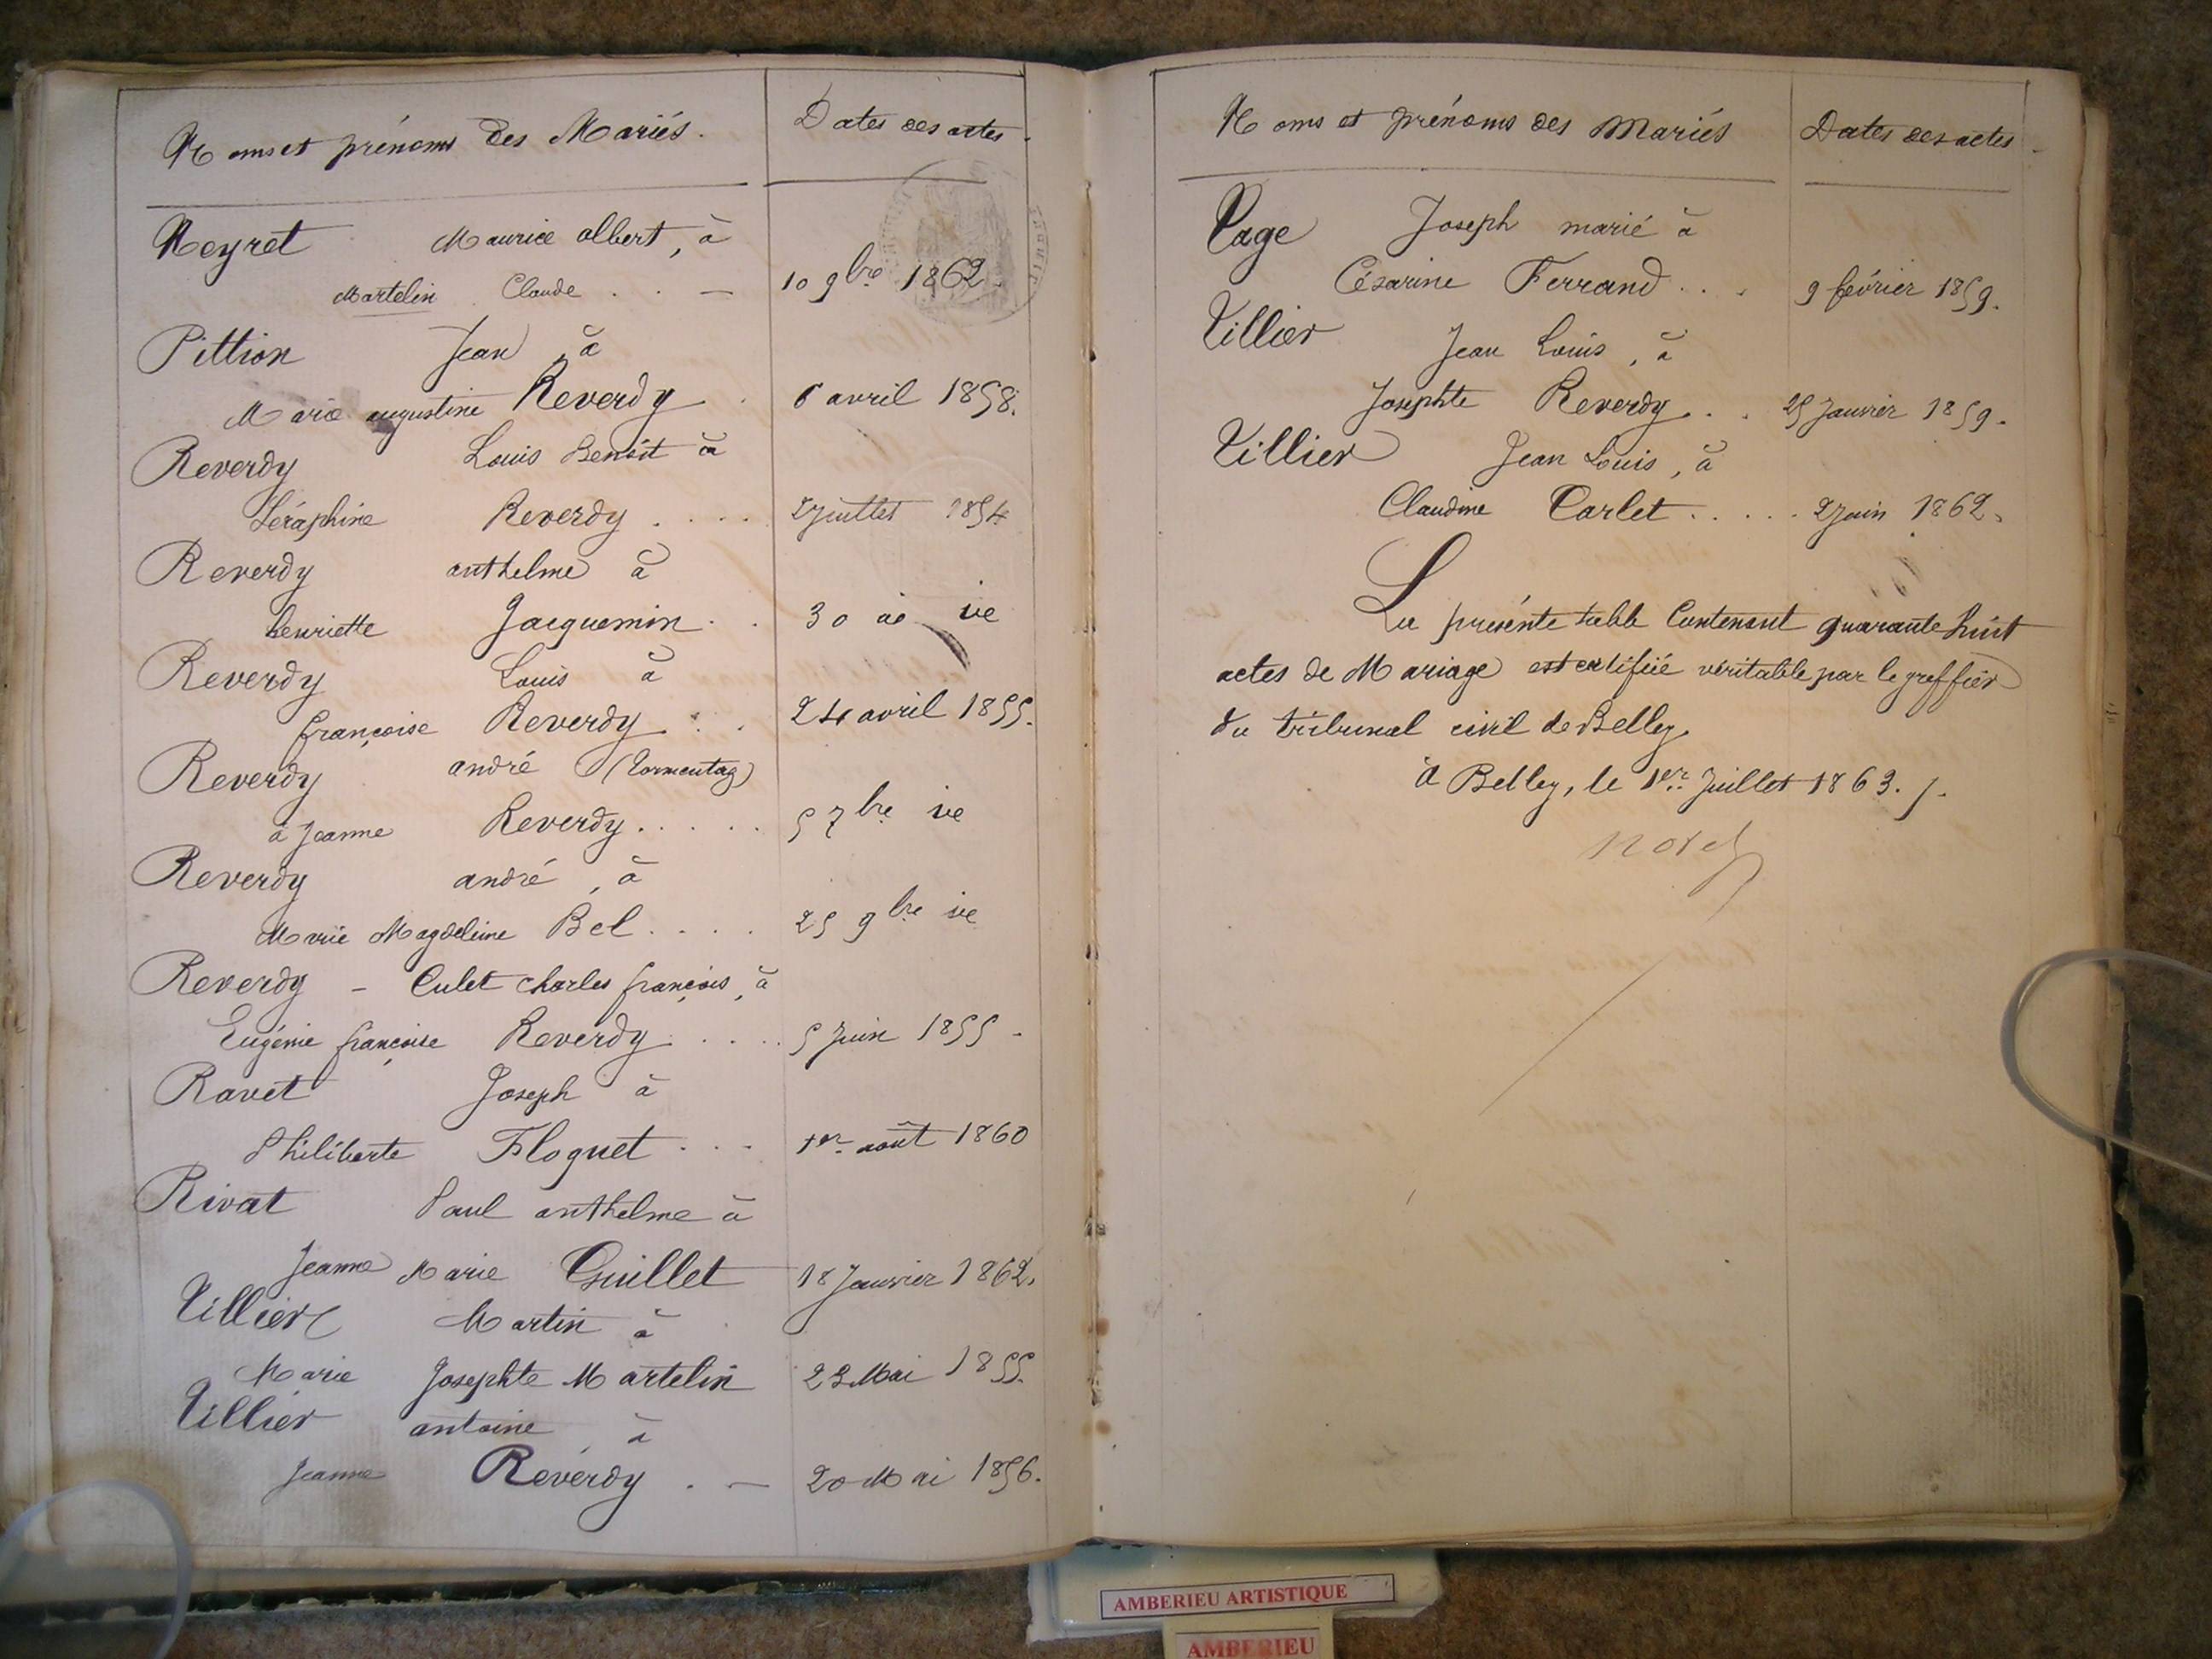 Noms et prénoms des Mariés.
Dates des actes.
Neyret Maurice albert, à
Martelin Claude . . —
10 9bre 1862.
Pittion Jean, à
Marie augustine Reverdy .
6 avril 1858.
Reverdy Louis Benoit à
Séraphine Reverdy . . . .
2 juillet 1854
Reverdy anthelme à
henriette Jacquemin . .
30
Reverdy Louis à
françoise Reverdy . . .
24 avril 1855.
Reverdy andré (Tormentaz)
à Jeanne Reverdy . . . . .
5 7bre
Reverdy andré, à
Marie Magdeleine Bel . . . .
25 9bre
Reverdy - Culet charles françois, à
Eugénie françoise Reverdy . . . .
5 Juin 1855 -
Ravet Joseph à
Philiberte Floquet . . .
1er août 1860
Rivat Paul anthelme à
Jeanne Marie Guillet
18 Janvier 1862.
Villier Martin à
Marie Josephte Martelin
23 Mai 1855.
Villier antoine à
Jeanne Reverdy . —
20 Mai 1856.
Noms et prénoms des Mariés
Dates des actes.
Page Joseph marié à
Césarine Ferrand . . .
9 février 1859.
Villier Jean Louis, à
Josephte Reverdy . .
25 Janvier 1859.
Villier Jean Louis, à
Claudine Carlet . . . . .
2 Juin 1862.
La présente table Contenant quarante huit
actes de Mariage est certifiée véritable par le greffier
du tribunal civil de Belley.
à Belley, le 1er Juillet 1863. /.
AMBERIEU ARTISTIQUE
AMBERIEU